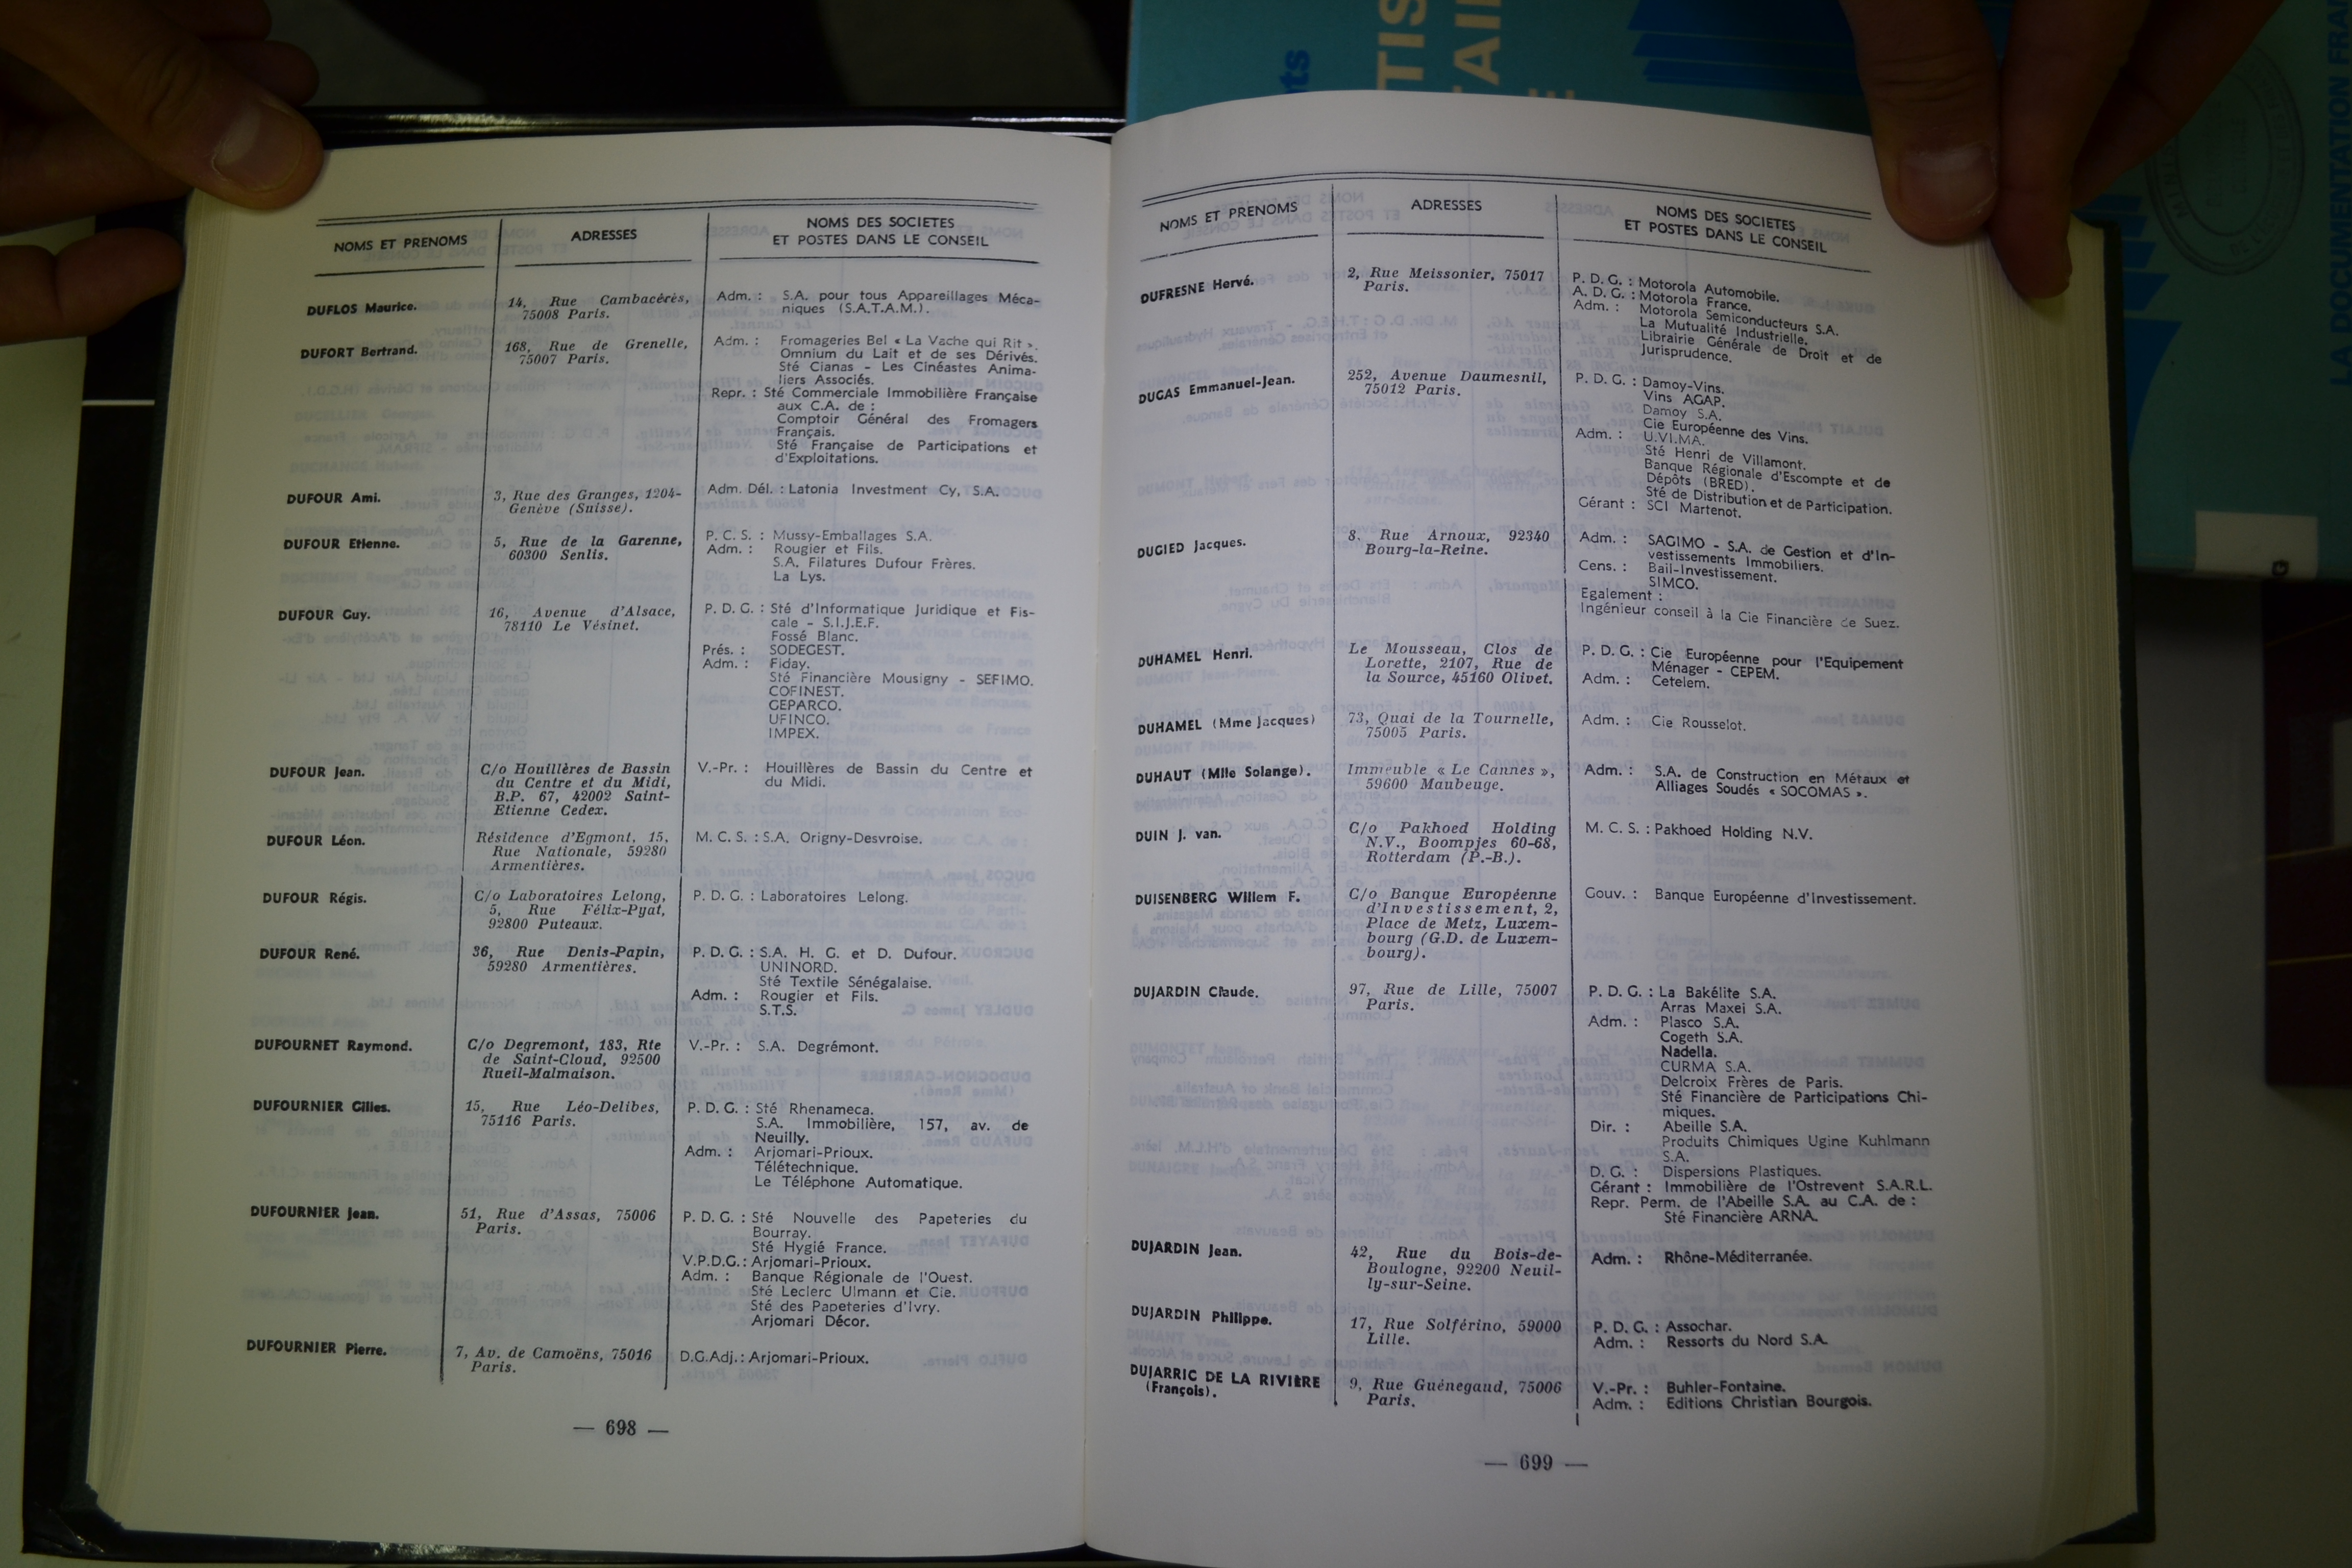 NOMS ET PRENOMS
ADRESSES
NOMS DES SOCIETES
ET POSTES DANS LE CONSEIL
DUFLOS Maurice.
14, Rue Cambacérès,
75008 Paris.
Adm. : S.A. pour tous Appareillages Méca-
niques (S.A.T.A.M.).
DUFORT Bertrand.
168, Rue de Grenelle,
75007 Paris.
Adm. : Fromageries Bel « La Vache qui Rit ».
Omnium du Lait et de ses Dérivés.
Sté Cianas - Les Cinéastes Anima-
liers Associés.
Repr. : Sté Commerciale Immobilière Française
aux C.A. de :
Comptoir Général des Fromagers
Français.
Sté Française de Participations et
d'Exploitations.
DUFOUR Ami.
3, Rue des Granges, 1204-
Genève (Suisse).
Adm. Dél. : Latonia Investment Cy, S.A.
DUFOUR Etienne.
5, Rue de la Garenne,
60300 Senlis.
P. C. S. : Mussy-Emballages S.A.
Adm. : Rougier et Fils.
S.A. Filatures Dufour Frères.
La Lys.
DUFOUR Guy.
16, Avenue d'Alsace,
78110 Le Vésinet.
P. D. G. : Sté d'Informatique Juridique et Fis-
cale - S.I.J.E.F.
Fossé Blanc.
Prés. : SODEGEST.
Adm. : Fiday.
Sté Financière Mousigny - SEFIMO.
COFINEST.
GEPARCO.
UFINCO.
IMPEX.
DUFOUR Jean.
C/o Houillères de Bassin
du Centre et du Midi,
B.P. 67, 42002 Saint-
Etienne Cedex.
V.-Pr. : Houillères de Bassin du Centre et
du Midi.
DUFOUR Léon.
Résidence d'Egmont, 15,
Rue Nationale, 59280
Armentières.
M. C. S. : S.A. Origny-Desvroise.
DUFOUR Régis.
C/o Laboratoires Lelong,
5, Rue Félix-Pyat,
92800 Puteaux.
P. D. G. : Laboratoires Lelong.
DUFOUR René.
36, Rue Denis-Papin,
59280 Armentières.
P. D. G. : S.A. H. G. et D. Dufour.
UNINORD.
Sté Textile Sénégalaise.
Adm. : Rougier et Fils.
S.T.S.
DUFOURNET Raymond.
C/o Degremont, 183, Rte
de Saint-Cloud, 92500
Rueil-Malmaison.
V.-Pr. : S.A. Degrémont.
DUFOURNIER Gilles.
15, Rue Léo-Delibes,
75116 Paris.
P. D. G. : Sté Rhenameca.
S.A. Immobilière, 157, av. de
Neuilly.
Adm. : Arjomari-Prioux.
Télétechnique.
Le Téléphone Automatique.
DUFOURNIER Jean.
51, Rue d'Assas, 75006
Paris.
P. D. G. : Sté Nouvelle des Papeteries du
Bourray.
Sté Hygié France.
V.P.D.G. : Arjomari-Prioux.
Adm. : Banque Régionale de l'Ouest.
Sté Leclerc Ulmann et Cie.
Sté des Papeteries d'Ivry.
Arjomari Décor.
DUFOURNIER Pierre.
7, Av. de Camoëns, 75016
Paris.
D.G.Adj. : Arjomari-Prioux.
— 698 —
NOMS ET PRENOMS
ADRESSES
NOMS DES SOCIETES
ET POSTES DANS LE CONSEIL
DUFRESNE Hervé.
2, Rue Meissonier, 75017
Paris.
P. D. G. : Motorola Automobile.
A. D. G. : Motorola France.
Adm. : Motorola Semiconducteurs S.A.
La Mutualité Industrielle.
Librairie Générale de Droit et de
Jurisprudence.
DUGAS Emmanuel-Jean.
252, Avenue Daumesnil,
75012 Paris.
P. D. G. : Damoy-Vins.
Vins AGAP.
Damoy S.A.
Cie Européenne des Vins.
Adm. : U.VI.MA.
Sté Henri de Villamont.
Banque Régionale d'Escompte et de
Dépôts (BRED).
Sté de Distribution et de Participation.
Gérant : SCI Martenot.
DUGIED Jacques.
8. Rue Arnoux, 92340
Bourg-la-Reine.
Adm. : SAGIMO - S.A. de Gestion et d'In-
vestissements Immobiliers.
Cens. : Bail-Investissement.
SIMCO.
Egalement :
Ingénieur conseil à la Cie Financière de Suez.
DUHAMEL Henri.
Le Mousseau, Clos de
Lorette, 2107, Rue de
la Source, 45160 Olivet.
P. D. G. : Cie Européenne pour l'Equipement
Ménager - CEPEM.
Adm. : Cetelem.
DUHAMEL (Mme Jacques)
73, Quai de la Tournelle,
75005 Paris.
Adm. : Cie Rousselot.
DUHAUT (Mlle Solange).
Immeuble « Le Cannes »,
59600 Maubeuge.
Adm. : S.A. de Construction en Métaux et
Alliages Soudés « SOCOMAS ».
DUIN J. van.
C/o Pakhoed Holding
N.V., Boompjes 60-68,
Rotterdam (P.-B.).
M. C. S. : Pakhoed Holding N.V.
DUISENBERG Willem F.
C/o Banque Européenne
d'Investissement, 2,
Place de Metz, Luxem-
bourg (G.D. de Luxem-
bourg).
Gouv. : Banque Européenne d'Investissement.
DUJARDIN Claude.
97, Rue de Lille, 75007
Paris.
P. D. G. : La Bakélite S.A.
Arras Maxei S.A.
Adm. : Plasco S.A.
Cogeth S.A.
Nadella.
CURMA S.A.
Delcroix Frères de Paris.
Sté Financière de Participations Chi-
miques.
Dir. : Abeille S.A.
Produits Chimiques Ugine Kuhlmann
S.A.
D. G. : Dispersions Plastiques.
Gérant : Immobilière de l'Ostrevent S.A.R.L.
Repr. Perm. de l'Abeille S.A. au C.A. de :
Sté Financière ARNA.
DUJARDIN Jean.
42, Rue du Bois-de-
Boulogne, 92200 Neuil-
ly-sur-Seine.
Adm. : Rhône-Méditerranée.
DUJARDIN Philippe.
17, Rue Solférino, 59000
Lille.
P. D. G. : Assochar.
Adm. : Ressorts du Nord S.A.
DUJARRIC DE LA RIVIÈRE
(François).
9, Rue Guénegaud, 75006
Paris.
V.-Pr. : Buhler-Fontaine.
Adm. : Editions Christian Bourgois.
— 699 —
LA DOCUMENTATION FRA